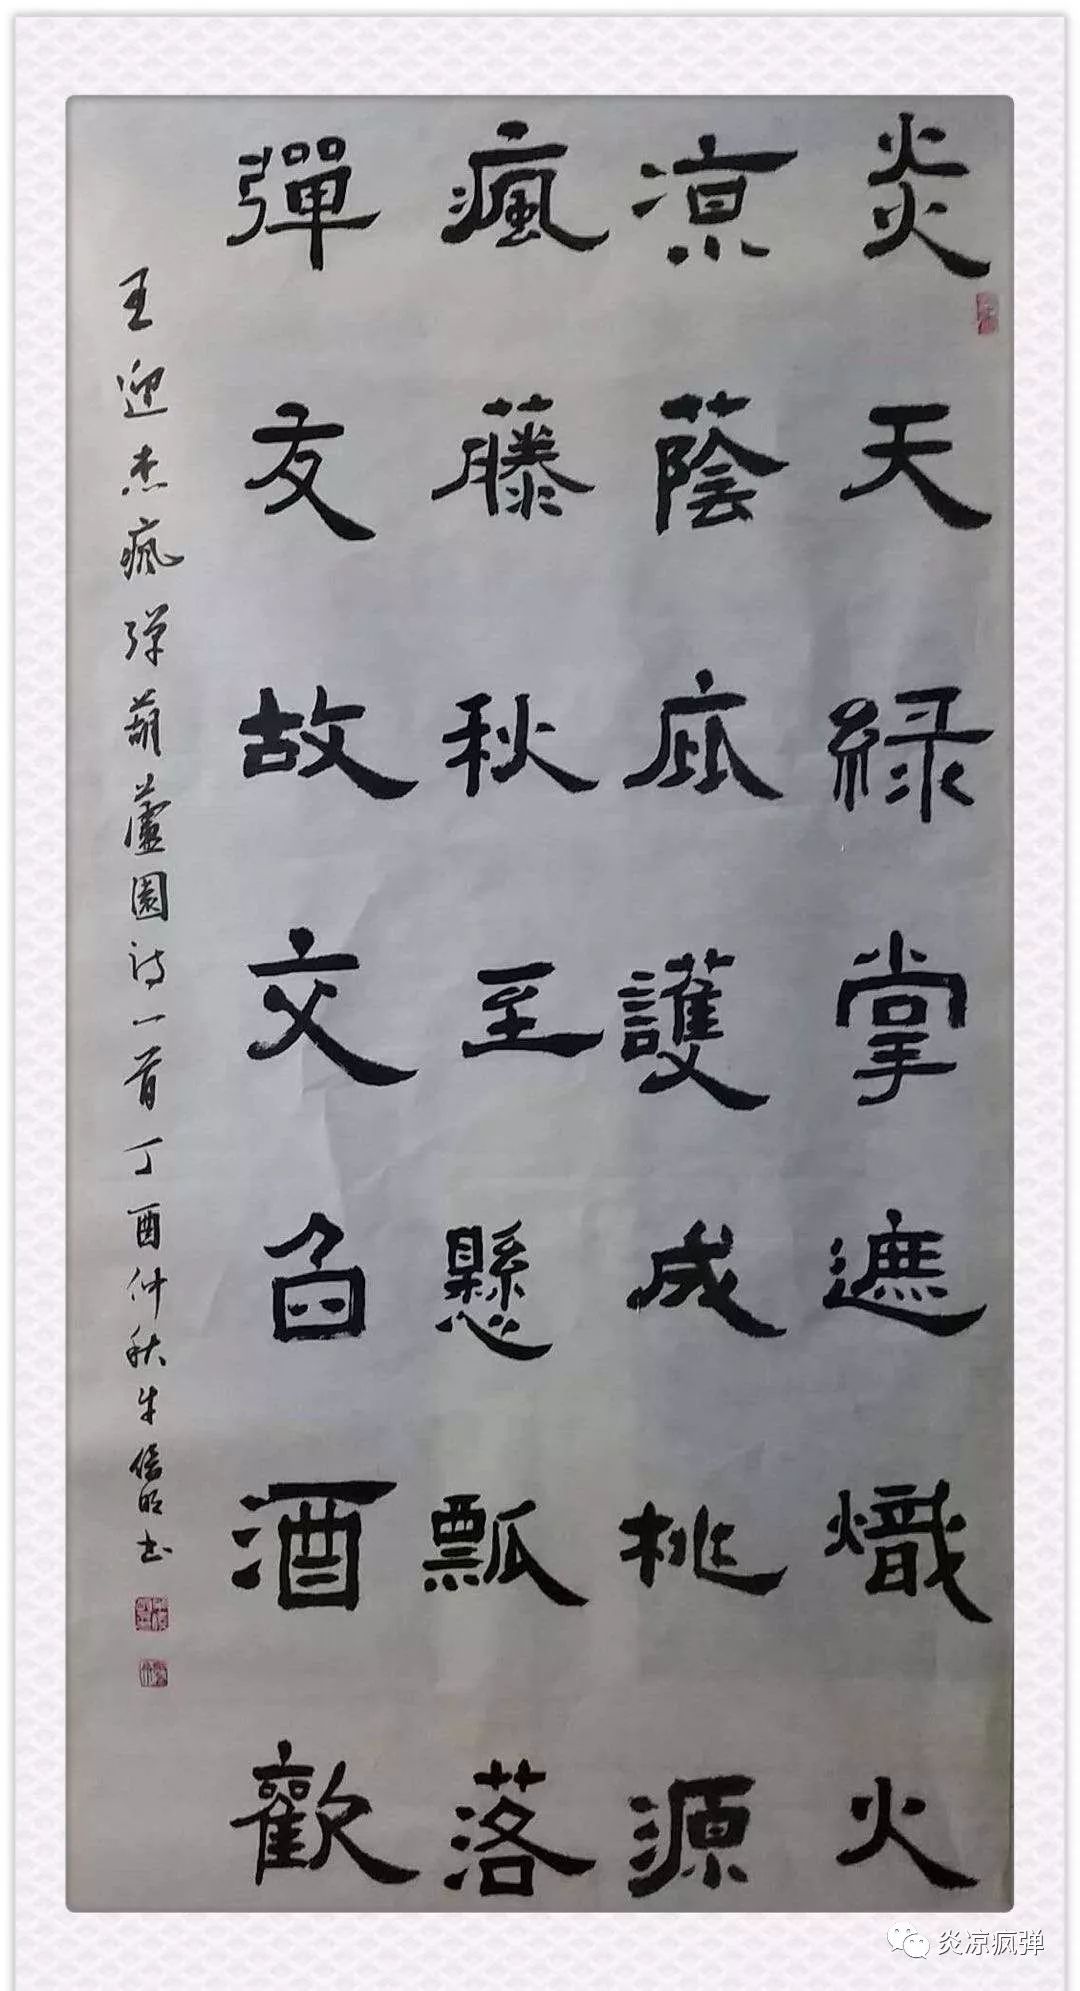 炎天綠掌遮熾火
凉蔭庇護成桃源
瘋藤秋至懸瓢落
彈友故交舀酒歡
王迎杰瘋弹葫蘆園诗一首丁酉仲秋牛倍明书
炎凉疯弹